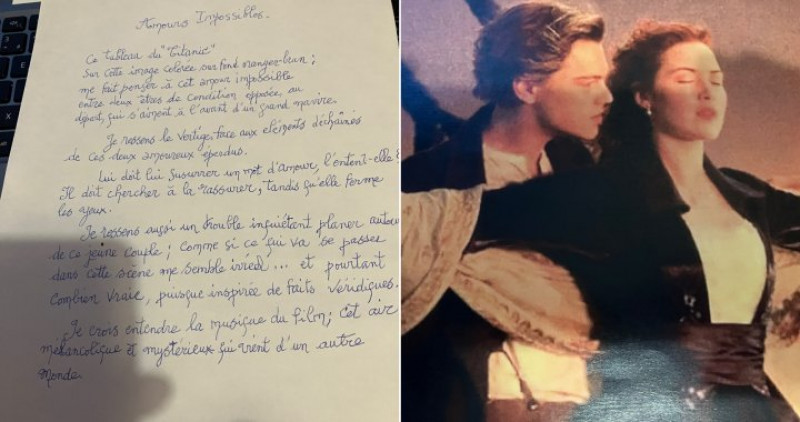 Amours Impossibles.
Ce tableau du "Titanic"
Sur cette image colorée sur fond oranger-brun ;
me fait penser à cet amour impossible
entre deux êtres de condition opposée, au
départ, qui s'aiment à l'avant d'un grand navire.
Je ressens le vertige, face aux eléments déchainés
de ces deux amoureux éperdus.
Lui doit lui susurrer un mot d'amour, l'entent-elle ?
Il doit chercher à la rassurer, tandis qu'elle ferme
les yeux.
Je ressens aussi un trouble inquiétant planer autour
de ce jeune couple ; comme si ce qui va se passer
dans cette scène me semble irréel... et pourtant
combien vraie, puisque inspirée de faits véridiques.
Je crois entendre la musique du film ; cet air
mélancolique et mystérieux qui vient d'un autre
Monde.